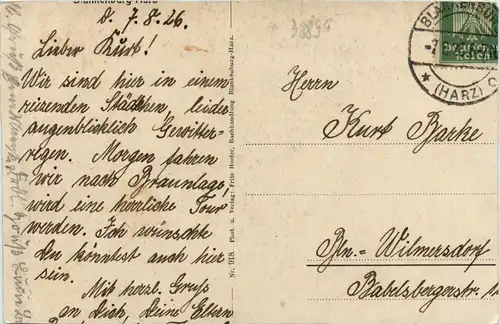 Blankenburg-Harz
d. 7.8.26.
Lieber Kurt!
Wir sind hier in einem
reizenden Städtchen, leider
augenblicklich Gewitter-
regen. Morgen fahren
wir nach Braunlage,
wird eine herrliche Tour
werden. Ich wünschte
Du könntest auch hier
sein.
Mit herzl. Gruss
an Dich, Deine Eltern
Nr. 918. Phot. u. Verlag: Fritz Hoefer, Buchhandlung Blankenburg-Harz.
Deutsches
Reich
(HARZ)
Herrn
Kurt Barke
Bln.-Wilmersdorf
Babelsbergerstr.